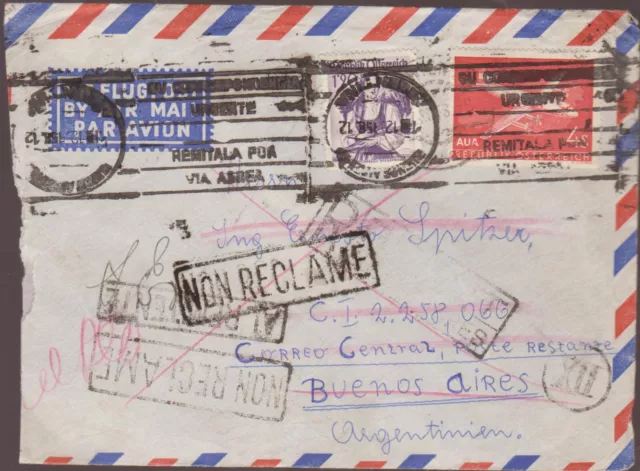 FLUGPOST
BY AIR MAIL
PAR AVION
SU CORRESPONDENCIA
URGENTE
REMITALA POR
VIA AEREA
Republik Österreich
SU
URGENTE
REMITALA POR
VIA AEREA
AUA
4 S
REPUBLIK ÖSTERREICH
BUENOS AIRES
Ing Spitzer,
N.E.
NON RECLAME
AL REMITENTE
NON RECLAME
C.I 2.258.066
Correo Central, Poste restante
Buenos Aires
Argentinien.
IX